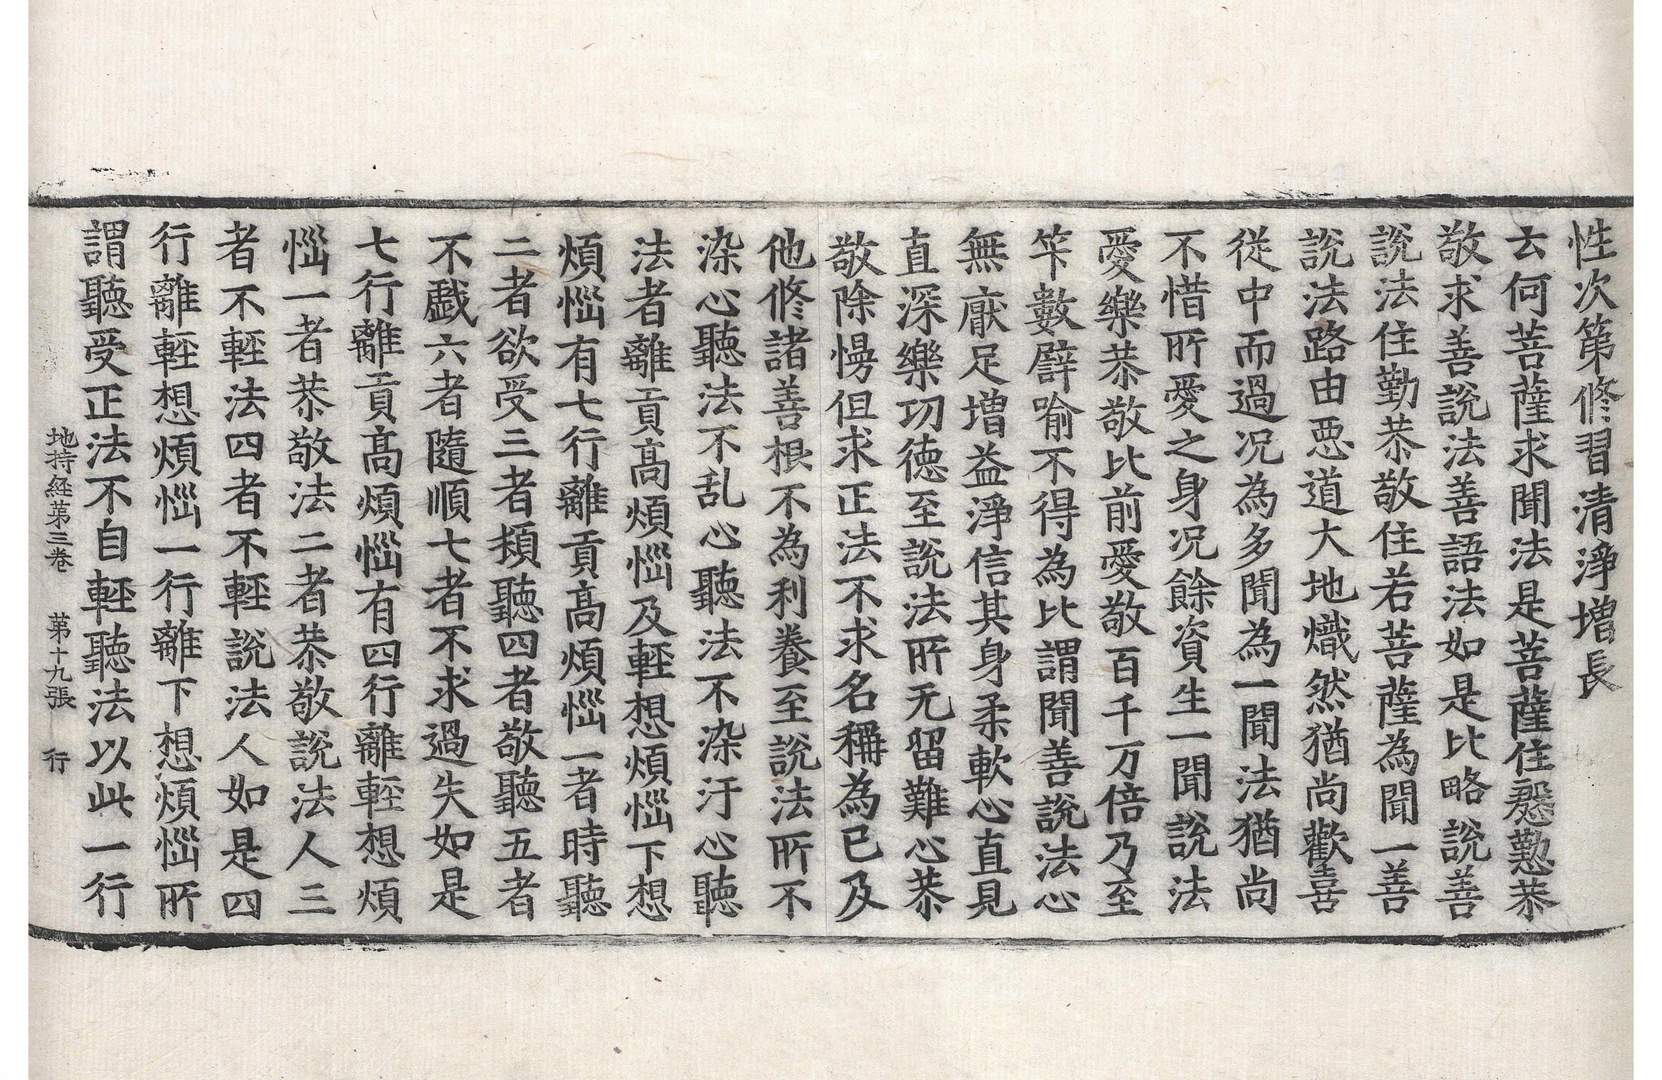 性次第修習清淨增長
云何菩薩求聞法是菩薩住慇懃恭
敬求善說法善語法如是比略說善
說法住勤恭敬住若菩薩為聞一善
說法路由悪道大地熾然猶尚歡喜
従中而過况為多聞為一聞法猶尚
不惜所愛之身况餘資生一聞說法
愛樂恭敬比前愛敬百千万倍乃至
笇數譬喻不得為比謂聞善說法心
無厭足增益淨信其身柔軟心直見
直深樂㓛德至說法所无留難心恭
敬除慢但求正法不求名稱為已及
他修諸善根不為利養至說法所不
染心聽法不乱心聽法不染汙心聽
法者離貢高煩惱及輕想煩惱下想
煩惱有七行離貢高煩惱一者時聽
二者欲受三者頻聽四者敬聽五者
不戯六者隨順七者不求過失如是
七行離貢高煩惱有四行離輕想煩
惱一者恭敬法二者恭敬說法人三
者不輕法四者不輕說法人如是四
行離輕想煩惱一行離下想煩惱所
謂聽受正法不自輕聽法以此一行
地持経第三卷 第十九張 行